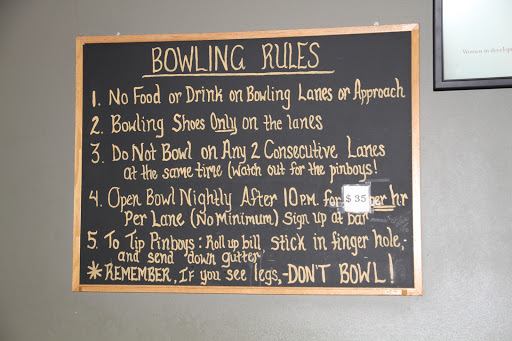 BOWLING RULES
1. NO FOOD OR DRINK ON BOWLING LANES OR APPROACH
2. BOWLING SHOES ONLY ON THE LANES
3. DO NOT BOWL ON ANY 2 CONSECUTIVE LANES
at the same time (watch out for the pinboys!
4. OPEN BOWL NIGHTLY AFTER 10 P.M. for $35 per hr
PER LANE (NO MINIMUM) SIGN UP AT BAR
5. TO TIP PINBOYS: Roll up bill, stick in finger hole,-
and send 'down gutter'
*REMEMBER, IF YOU SEE legs,-DON'T BOWL!
Women in